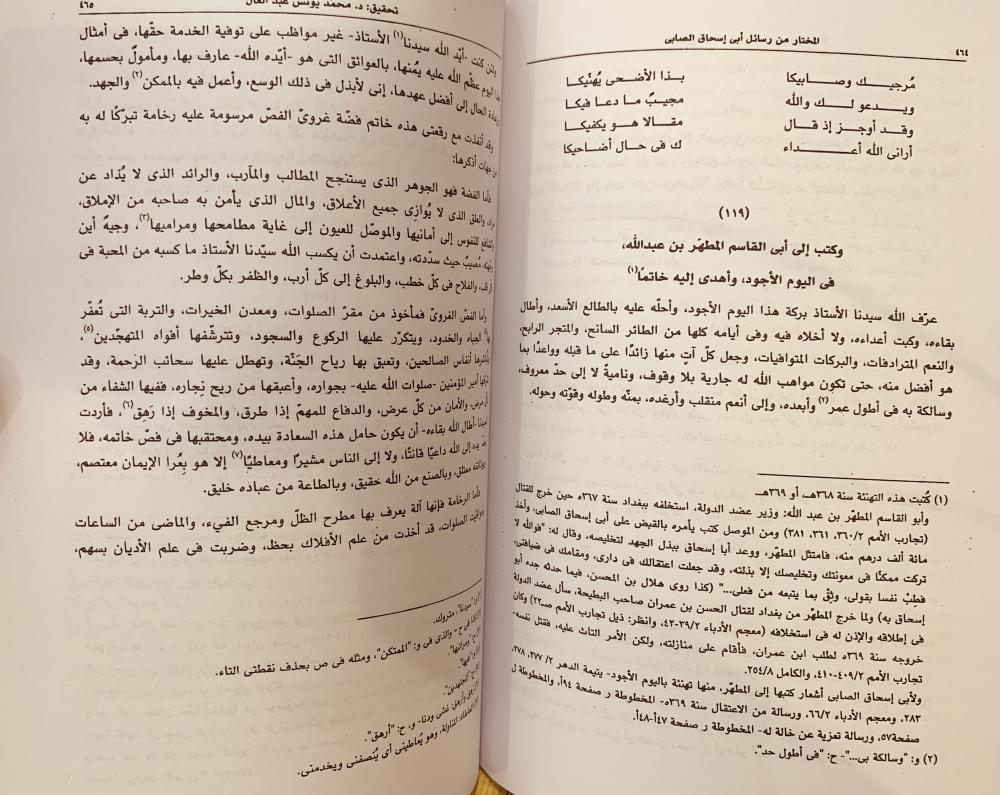 ٤٦٤
المختار من رسائل أبى إسحاق الصابى
مُرجيـك وصـابيكا بـذا الأضـحى يُهنّيكـا
ويـدعو لـك والله مجيبٌ ما دعا فيكا
وقـد أوجـز إذ قـال مقـالا هـو يكفيكـا
أرانى الله أعـداء ك فى حال أضـاحيكا
(١١٩)
وكتب إلى أبى القاسم المطهّر بن عبدالله،
فى اليوم الأجود، وأهدى إليه خاتمًا(١)
عرّف الله سيدنا الأستاذ بركة هذا اليوم الأجود، وأحلّه عليه بالطالع الأسعد، وأطال
بقاءه، وكبت أعداءه، ولا أخلاه فيه وفى أيامه كلها من الطائر السانح، والمتجر الرابح،
والنعم المترادفات، والبركات المتوافيات، وجعل كلّ آتٍ منها زائدًا على ما قبله وواعدًا بما
هو أفضل منه، حتى تكون مواهب الله له جارية بلا وقوف، وناميةً لا إلى حدّ معروف،
وسالكة به فى أطول عمر(٢) وأبعده، وإلى أنعم منقلب وأرغده، بمنّه وطوله وقوّته وحوله.
(١) كُتبت هذه التهنئة سنة ٣٦٨هـ أو ٣٦٩هـ
وأبو القاسم المطهّر بن عبد الله: وزير عضد الدولة، استخلفه ببغداد سنة ٣٦٧ه حين خرج للقتال
(تجارب الأمم ٣٦٠/٢، ٣٦١، ٣٨١) ومن الموصل كتب يأمره بالقبض على أبى إسحاق الصابى، وأخذ
مائة ألف درهم منه، فامتثل المطهّر، ووعد أبا إسحاق ببذل الجهد لتخليصه، وقال له: "فوالله لا
تركت ممكنًا فى معونتك وتخليصك إلا بذلته، وقد جعلت اعتقالك فى دارى، ومقامك فى ضيافتى،
فطِبْ نفسا بقولى، وثِقْ بما يتبعه من فعلى..." (كذا روى هلال بن المحسن، فيما حدثه جده أبو
إسحاق به) ولما خرج المطهّر من بغداد لقتال الحسن بن عمران صاحب البطيحة، سأل عضد الدولة
فى إطلاقه والإذن له فى استخلافه (معجم الأدباء ٣٩/٢-٤٢، وانظر: ذيل تجارب الأمم صـ٢٢) وكان
خروجه سنة ٣٦٩ه لطلب ابن عمران، فأقام على منازلته، ولكن الأمر التاث عليه، فقتل نفسه-
تجارب الأمم ٤٠٩/٢-٤١٠، والكامل ٢٥٤/٨.
ولأبى إسحاق الصابى أشعار كتبها إلى المطهّر، منها تهنئة باليوم الأجود- يتيمة الدهر ٢/ ٢٧٧، ٢٧٨،
٢٨٣، ومعجم الأدباء ٦٦/٢، ورسالة من الاعتقال سنة ٣٦٩ه- المخطوطة ر صفحة ٩٤أ، والمخطوطة ل
صفحة٥٧، ورسالة تعزية عن خالة له- المخطوطة ر صفحة ٤٧أ-٤٨أ.
(٢) و: "وسالكة بى..."- ح: "فى أطول حد".
تحقيق: د. محمد يونس عبد العال
٤٦٥
ولئن كنت -أيّد الله سيدنا(١) الأستاذ- غير مواظب على توفية الخدمة حقّها، فى أمثال
هذا اليوم عظّم الله عليه يُمنها، بالعوائق التى هو -أيّده الله- عارف بها، ومأمولٌ بحسمها،
وإعادة الحال إلى أفضل عهدها، إنى لأبذل فى ذلك الوسع، وأعمل فيه بالممكن(٢) والجهد.
وقد أنفذت مع رقعتى هذه خاتم فضّة غروىّ الفصّ مرسومة عليه رخامة تبركًا له به
من جهات أذكرها:
فأما الفضة فهو الجوهر الذى يستنجح المطالب والمآرب، والرائد الذى لا يُذاد عن
مراد، والعلق الذى لا يُوازِى جميع الأعلاق، والمال الذى يأمن به صاحبه من الإملاق،
والشافع للنفوس إلى أمانيها والموصّل للعيون إلى غاية مطامحها ومراميها(٣)، وجيهٌ أين
وجّهته، مُصيبٌ حيث سدّدته، واعتمدت أن يكسب الله سيّدنا الأستاذ ما كسبه من المحبة فى
كلّ قلب، والفلاح فى كلّ خطب، والبلوغ إلى كلّ أرب، والظفر بكلّ وطر.
وأما الفصّ الغروىّ فمأخوذ من مقرّ الصلوات، ومعدن الخيرات، والتربة التى تُعفّر
بها الجباه والخدود، ويتكرّر عليها الركوع والسجود، وتترشّفها أفواه المتهجّدين(٥)،
أنفاس الصالحين، وتعبق بها رياح الجَنّة، وتهطل عليها سحائب الرحمة، وقد
أمير المؤمنين -صلوات الله عليه- بجواره، وأعبقها من ريح نِجاره، ففيها الشفاء من
كلّ مرض، والأمان من كلّ عرض، والدفاع للمهمّ إذا طرق، والمخوف إذا رَهِق(٦)، فأردت
لسيدنا -أطال الله بقاءه- أن يكون حامل هذه السعادة بيده، ومحتقبها فى فصّ خاتمه، فلا
يمدّ يده إلى الله داعيًا قانتًا، ولا إلى الناس مشيرًا ومعاطيًا(٧) إلا هو بعُرا الإيمان معتصم،
معتلق، وبالصنع من الله حقيق، وبالطاعة من عباده خليق.
فأما الرخامة فإنها آلة يعرف بها مطرح الظلّ ومرجع الفيء، والماضى من الساعات
ومواقيت الصلوات، قد أخذت من علم الأفلاك بحظ، وضربت فى علم الأديان بسهم،
"سيدنا"، متروك.
كذا فى ح - والذى فى و: "الممتكن"، ومثله فى ص بحذف نقطتى التاء.
"ومراتبها".
"فيها".
"المجتهدين".
رهق وأرهق: غشى ودنا- و، ح: "أرهق".
المعاطاة: المناولة، وهو يُعاطينى أى يُنصفنى ويخدمنى.